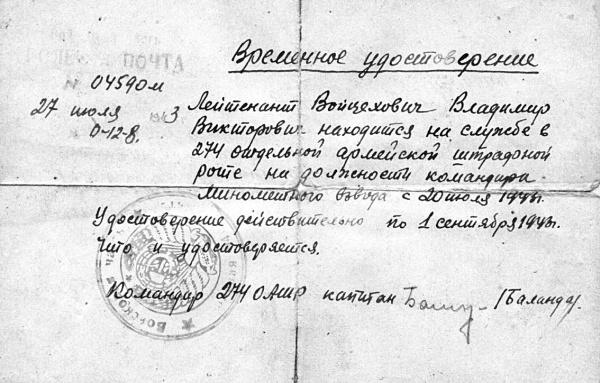 Временное удостоверение
ПОЛЕВАЯ ПОЧТА
№
04590м
27 июля 1943
0-12-8.
Лейтенант Войцехович Владимир
Викторович находится на службе в
274 отдельной армейской штрафной
роте на должности командира
Минометного взвода с 20 июля 1943г.
Удостоверение действительно по 1 сентября 1943г.
Что и удостоверяется.
Командир 274 ОАШР капитан /Баланда/.